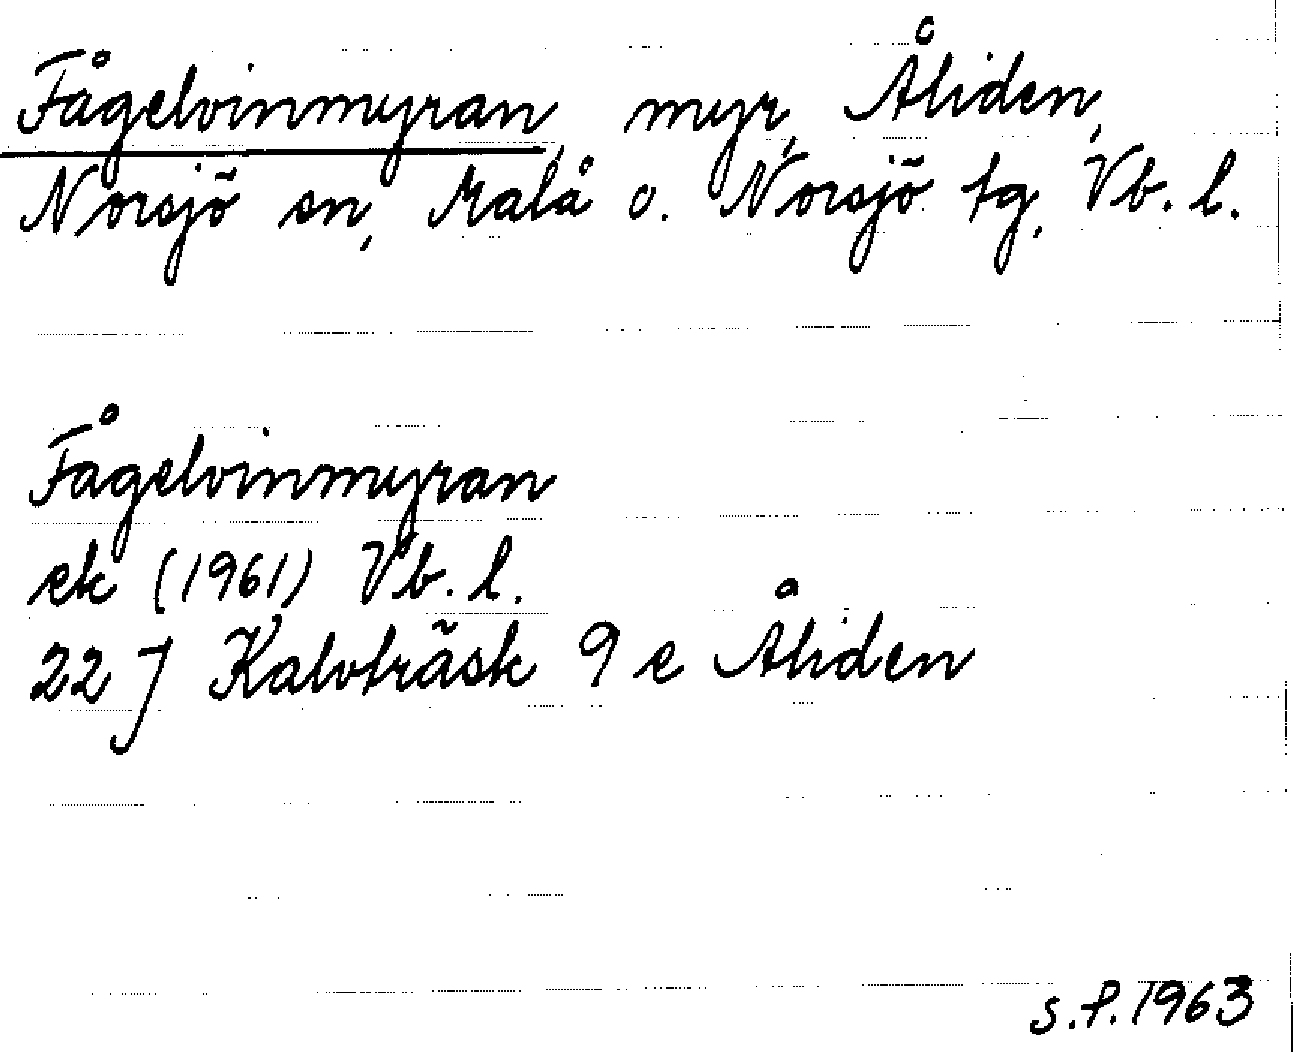 Fågelvinmyran, myr, Åliden,
Norsjö sn, Malå o. Norsjö tg, Vb. l.
Fågelvinmyran
ek (1961) Vb. l.
22 J Kalvträsk 9 e Åliden
s.f. 1963